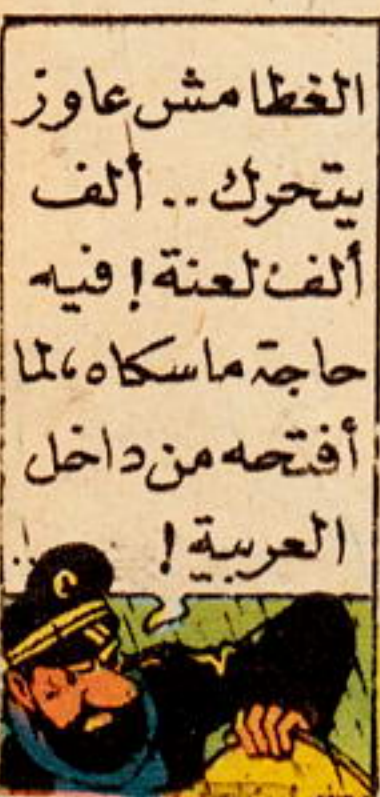 الغطا مش عاوز
يتحرك .. ألف
ألف لعنة ! فيه
حاجة ماسكاه، لما
أفتحه من داخل
العربية !